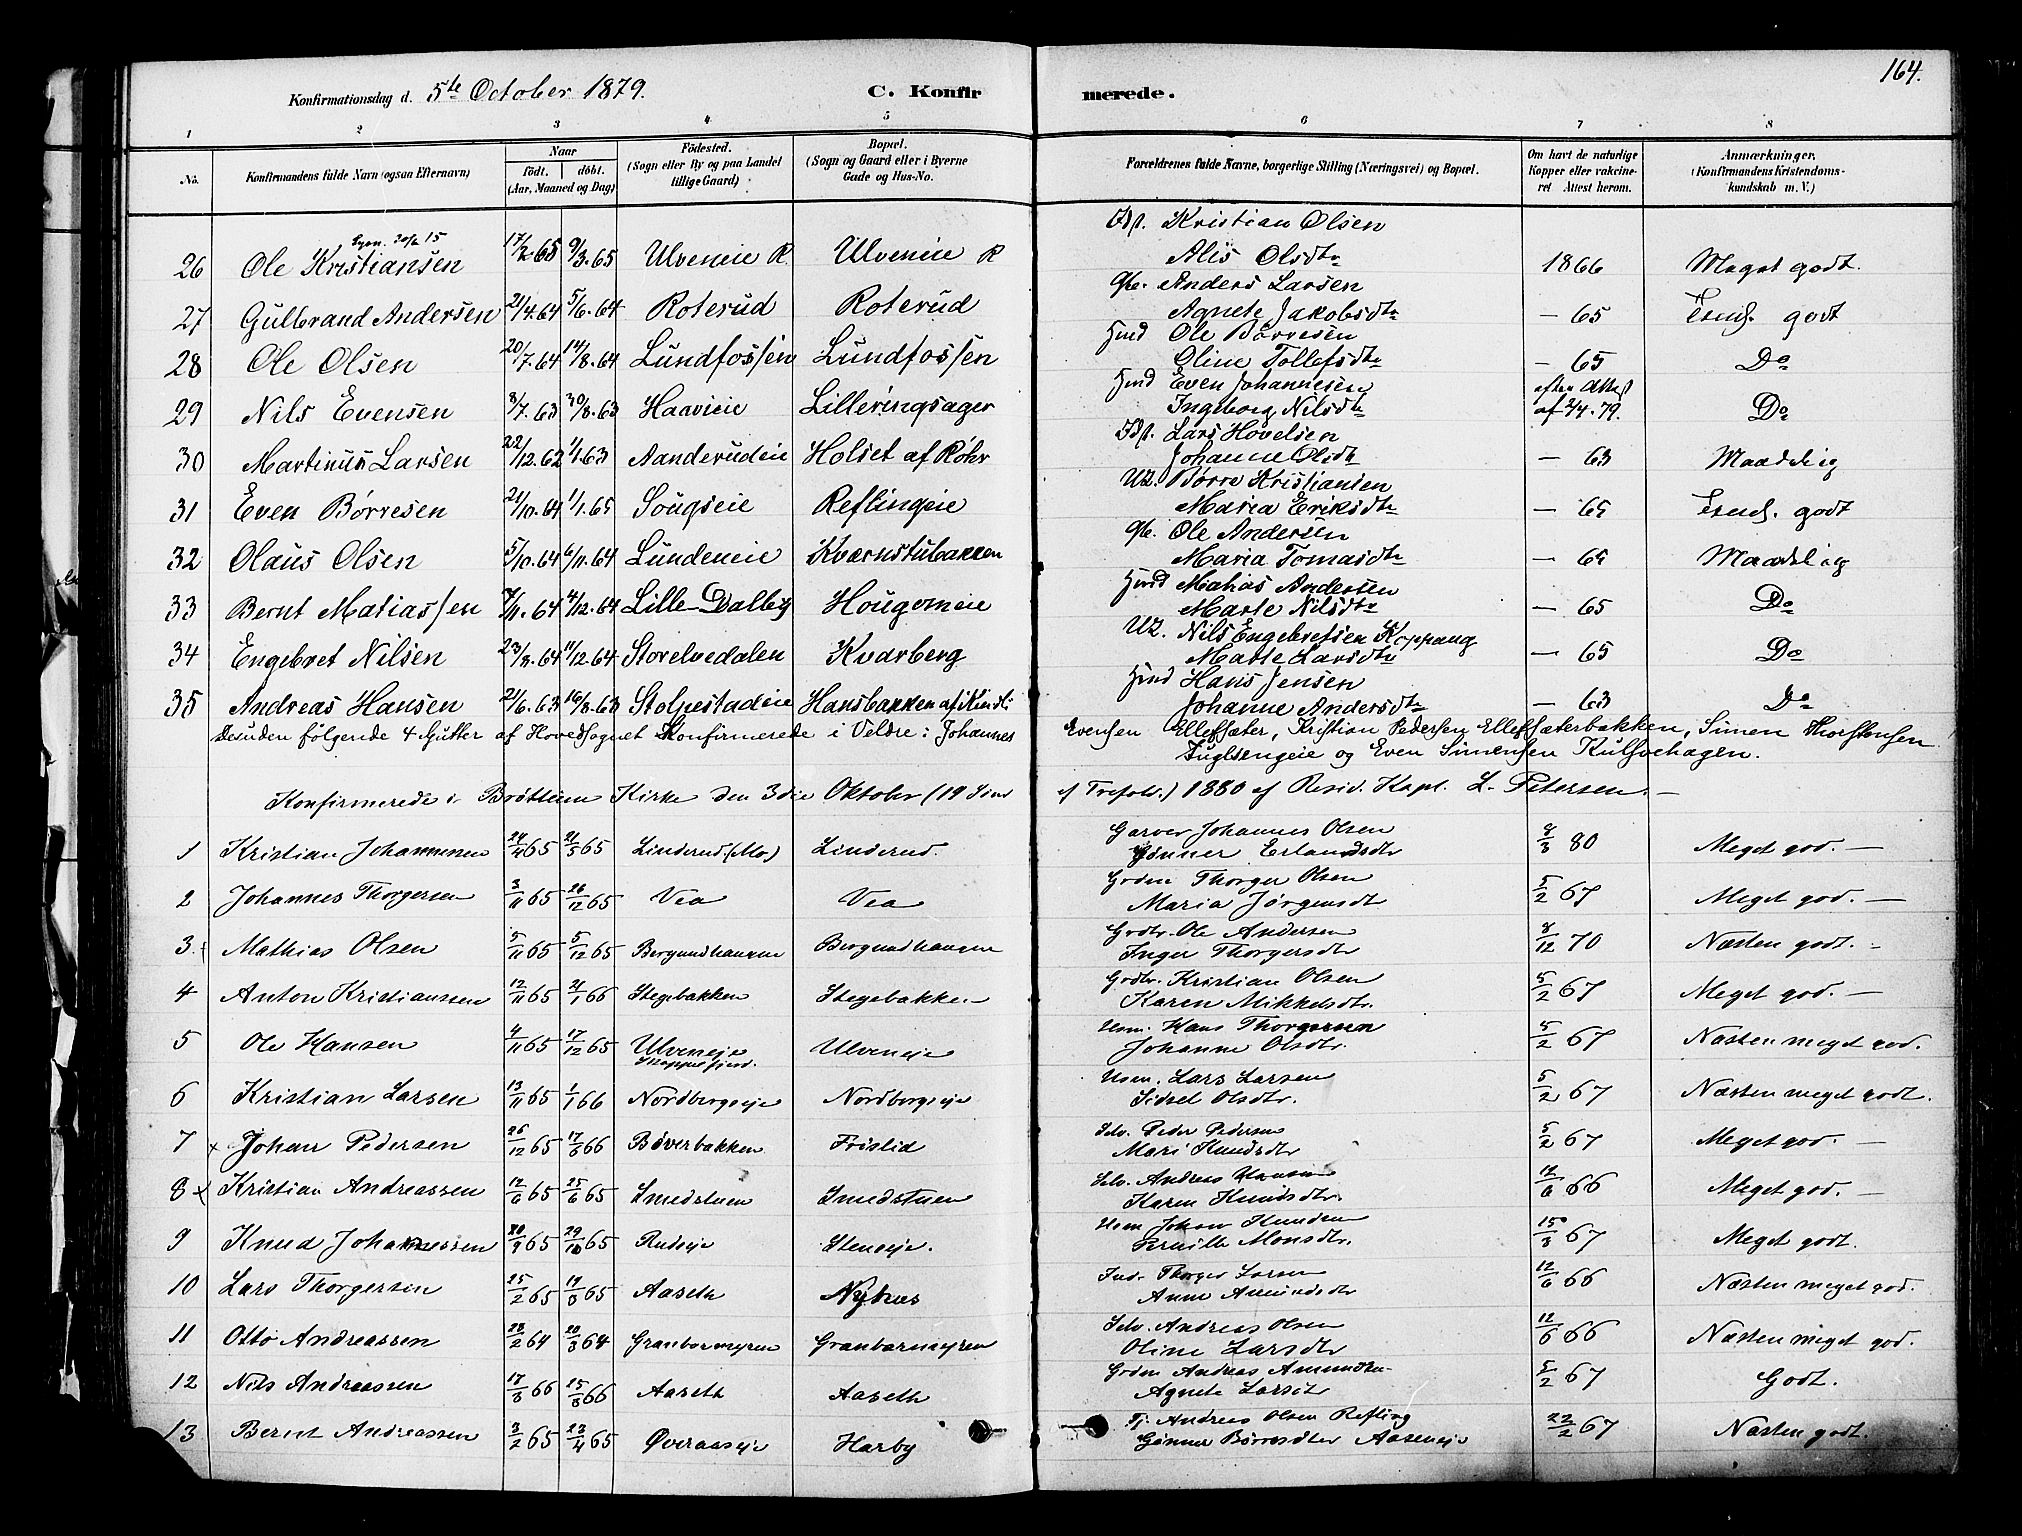 164.
Konfirmationsdag d. 5te October 1879. C. Konfirmerede.
1 2 3 4 5 6 7 8
No. Konfirmandens fulde Navn (ogsaa Efternavn) Naar født. døbt. (Aar, Maaned og Dag) Fødested. (Sogn eller By og paa Landet tillige Gaard) Bopæl. (Sogn og Gaard eller i Byerne Gade og Hus-No. Forældrenes fulde Navne, borgerlige Stilling (Næringsvei) og Bopæl. Om havt de naturlige Kopper eller vakcineret Attest herom. Anmærkninger. (Konfirmandens Kristendomskundskab m. V.)
26 Ole Kristiansen 17/2 65 9/3.65 Ulveneie R. Ulveneie R Kristian Olsen
Alis Olsdtr 1866 Meget godt.
27 Gulbrand Andersen 21/4.64 5/6.64 Roterud Roterud Gbr. Anders Larsen
Agnete Jakobsdtr — 65 godt
28 Ole Olsen 20/7.64 14/8.64 Lundfossen Lundfossen Hmd Ole Børresen
Oline Tollefsdtr — 65 Do
29 Nils Evensen 3/7.63 30/8.63 Haavieie Lilleringsager Hmd Even Johannesen
Ingeborg Nilsdtr efter Attest af 2/4.79. Do
30 Martinus Larsen 22/12.62 1/1.63 Aanderudeie Holset af Røhr Lars Hovelsen
Johanne Olsdtr — 63 Maadelig
31 Even Børresen 21/10.64 1/1.65 Sougseie Reflingeie Børre Kristiansen
Maria Eriksdtr — 65 godt
32 Olaus Olsen 5/10.64 6/11.64 Lundeneie Kværnstubakken Gbr. Ole Andersen
Maria Tomasdtr — 65 Maadelig
33 Bernt Matiassen 7/11.64 4/12.64 Lille Dalby Hougemeie Hmd Matias Andersen
Marte Nilsdtr — 65 Do
34 Engebret Nilsen 23/8.64 11/12.64 Storelvedalen Kvarberg Nils Engebretsen Koppang
Marte Larsdtr — 65 Do
35 Andreas Hansen 21/6.63 16/8.63 Stolpestadeie Hansbakken af Kindli Hmd Hans Jensen
Johanne Andersdtr — 63 Do
Desuden følgende 4 Gutter af Hovedsognet Konfirmerede i Veldre: Johannes Evensen Ellefsæter, Kristian Pedersen Ellefsæterbakken, Simen Thorstensen
Fuglsengeie og Even Simensen Kulsvehagen.
Konfirmerede i Brøttum Kirke den 3die Oktober (19 Sønd. ef Trefold.) 1880 af Resid. Kapl. L. Petersen. —
1 Kristian Johannesen 24/4 65 21/5 65 Linderud (Mo) Linderud. Garver Johannes Olsen
Gønner Erlandsdtr 8/3 80 Meget god. —
2 Johannes Thorgersen 3/11 65 26/12 65 Vea Vea Grdm Thorger Olsen
Maria Jørgensdtr 5/2 67 Meget god. —
3. Mathias Olsen 5/11 65 5/12 65 Bergundhaugen Bergundhaugen Grdbr. Ole Andersen
Inger Thorgersdtr 8/12 70 Næsten godt. -
4 Anton Kristiansen 12/11 65 21/1 66 Stegebakken Stegebakken Grdbr. Kristian Olsen
Karen Mikkelsdtr. 5/2 67 Meget god. —
5 Ole Hansen 4/11 65 17/12 65 Ulveneje Ulveneje Husm. Hans Thorgersen
Johanne Olsdtr. 5/2 67 Næsten meget god.
6 Kristian Larsen 13/11 65 1/1 66 Nordbergseje Nordbergseje Husm. Lars Larsen
Sidsel Olsdtr. 5/2 67 Næsten meget godt.
7 x Johan Pedersen 26/12 65 17/8 66 Bøverbakken Frislid Selv. Peder Pedersen
Mari Knudsdtr 5/2 67 Meget god. —
8 x Kristian Andreassen 12/6 65 25/6 65 Smedstuen Smedstuen Selv. Andreas Hansen
Karen Knudsdtr. 12/6 66 Meget god. —
9 Knud Johannessen 20/9 65 29/10 65 Rudseje Steneeje. Husm Johan Knudsen
Monsdtr. 15/8 67 Meget godt.
10 Lars Thorgersen 25/2 65 17/8 65 Aaseth Nyhus Ind. Thorger Larsen
Anne Amundsdtr 12/6 66 Næsten meget god.
11 Otto Andreassen 28/2 64 20/3 64 Granbarmyren Granbarmyren Selv. Andreas Olsen
Oline Larsdtr 12/6 66 Næsten meget god.
12 Nils Andreassen 17/3 66 15/8 66 Aaseth Aaseth Grdm Andreas Amundsen
Agnete Larsdtr 5/2 67 Godt.
13 Bernt Andreassen 3/2 65 23/4 65 Øveraaseje Harby Tj. Andreas Olsen Refling
Gønner Børresdter Aaseneje 22/2 67 Næsten godt.